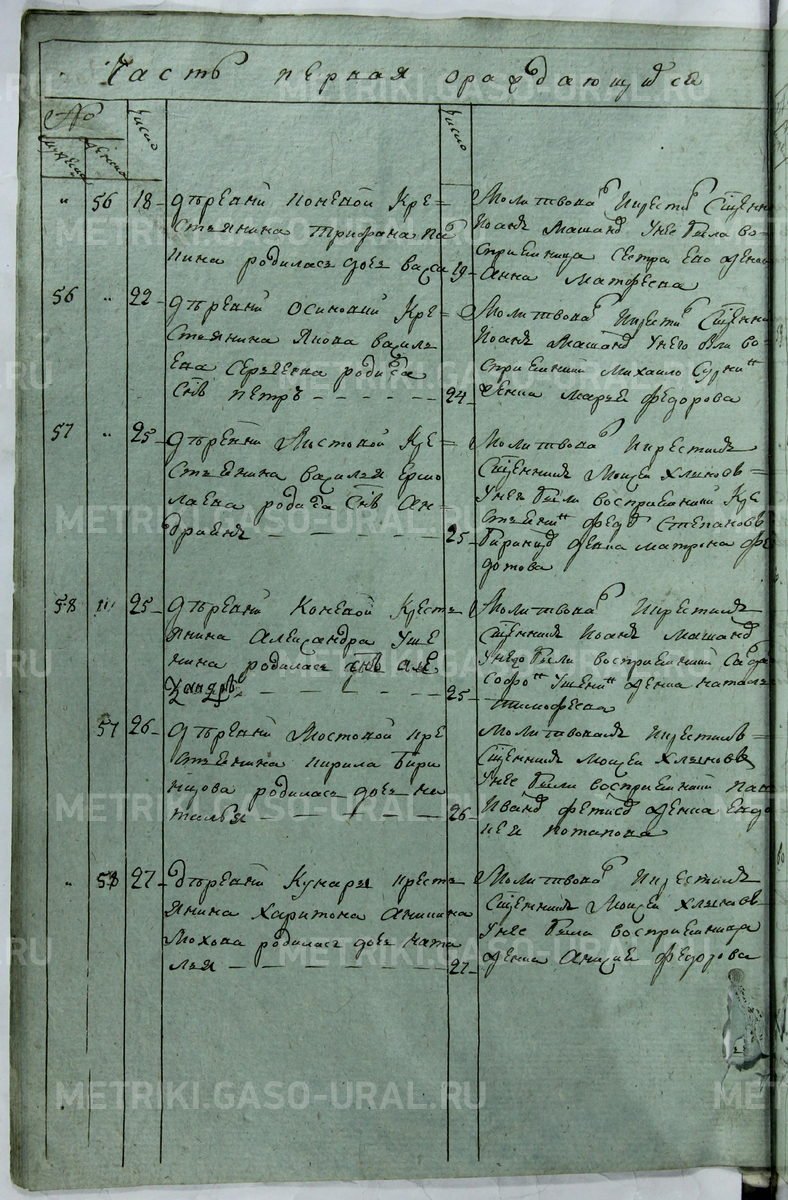 Часть первая ораждающихся
№
мужеска
женска
число
число
" 56 18 Дѣревни Коневой Кре=
стьянина Трифана Па
нина родилась дочь васа
19 Молитвовалъ и крестилъ Сщенни
Иоанъ Машанов У нее была во=
сприемница сестра Его девка
Анна Матфеева
56 " 22 Дѣревни Осиновки Кре=
стьянина Якова василь
ева Сергеева родился
снъ Петръ
24 Молитвовалъ и крестилъ Сщенни
Иоанъ Машанов У него были во
сприемники Михайло
девка Марья Федорова
57 " 25 Дѣревни Мостовой Кре=
стьянина василья Ермо
лаева родился снъ Ан=
дрианъ
25 Молитвовалъ и крестилъ
Сщенникъ Моисей Хлынов
У него были восприемники Кре
стьянинъ Федор Степановъ
девка матрона Фе
дотова
58 25 Дѣревни Коневой Кресть
янина Александра Уше
нина родилась снъ Але
ксандръ
25 Молитвовалъ и крестилъ
Сщенникъ Иоанъ Машанов
У него были восприемники
девка наталья
Тимофеева
57 26 Дѣревни Мостовой кре
стьянина Кирила Бири
цова родилась дочь На
талья
26 Молитвовалъ и крестилъ
Сщенникъ Моисей Хлыновъ
У нее были восприемники
Иванъ девка Евдо
кея Потапова
" 58 27 Дѣревни Кунары кресть
янина Харитона Аникина
Мохова родилась дочь ната
лья
27 Молитвовалъ и крестилъ
Сщенникъ Моисей Хлынов
У нее была восприемница
девка Анисия Федорова
METRIKI.GASO-URAL.RU